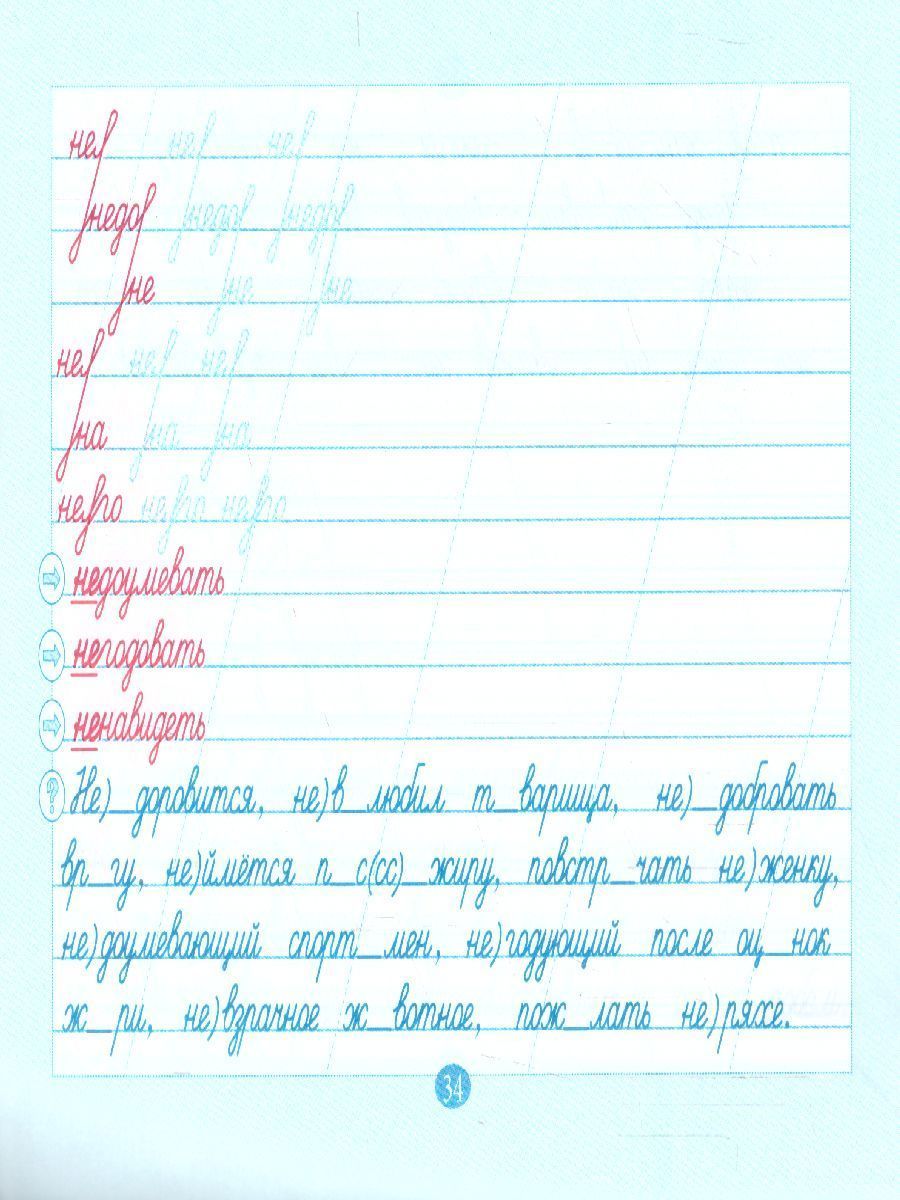 не) не) не)
)недо) )недо) )недо)
)не )не )не
не) не) не)
)на )на )на
не)го не)го не)го
недоумевать
негодовать
ненавидеть
Не)_доровится, не)в_любил т_варища, не)_добровать
вр_гу, не)ймётся п_с(сс)_жиру, повстр_чать не)женку,
не)доумевающий спорт_мен, не)годующий после оц_нок
ж_ри, не)взрачное ж_вотное, пож_лать не)ряхе.
34